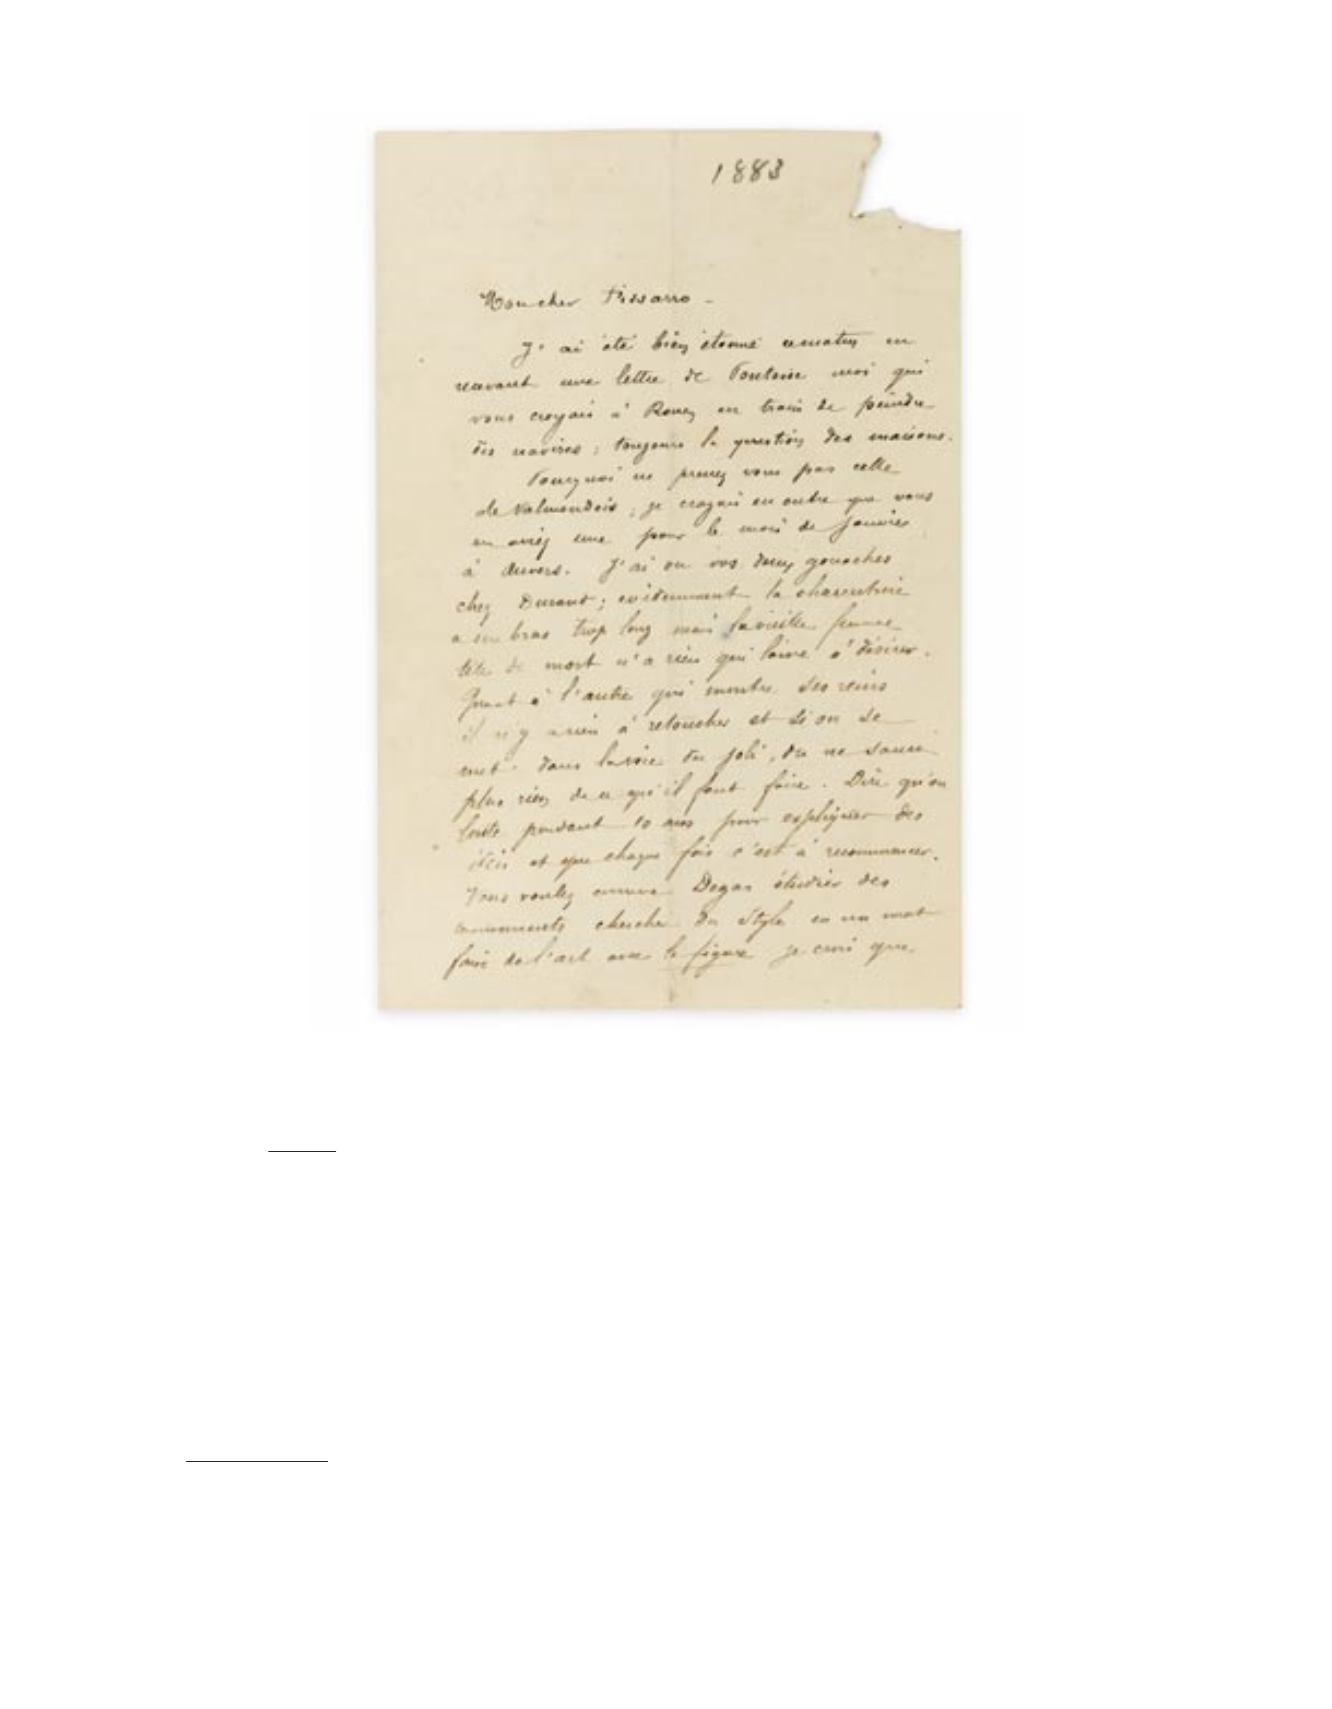 1883
Mon cher Pissarro -
J'ai été bien étonné ce matin en
recevant une lettre de Pontoise moi qui
vous croyais à Rouen en train de peindre
des navires ; toujours la question des maisons.
Pourquoi ne prenez vous pas celle
de Valmondois ; je croyais en outre que vous
en aviez une pour le mois de janvier
à Auvers. J'ai vu vos deux gouaches
chez Durand ; évidemment la charcuterie
a un bras trop long mais la vieille femme
tête de mort n'a rien qui laisse à désirer.
Quant à l'autre qui montre ses reins
il n'y a rien à retoucher et si on se
met dans la voie du joli, on ne saura
plus rien de ce qu'il faut faire. Dire qu'on
lutte pendant 10 ans pour expliquer des
idées et que chaque fois c'est à recommencer.
Vous voulez comme Degas étudier des
mouvements chercher du style en un mot
faire de l'art avec la figure je crois que